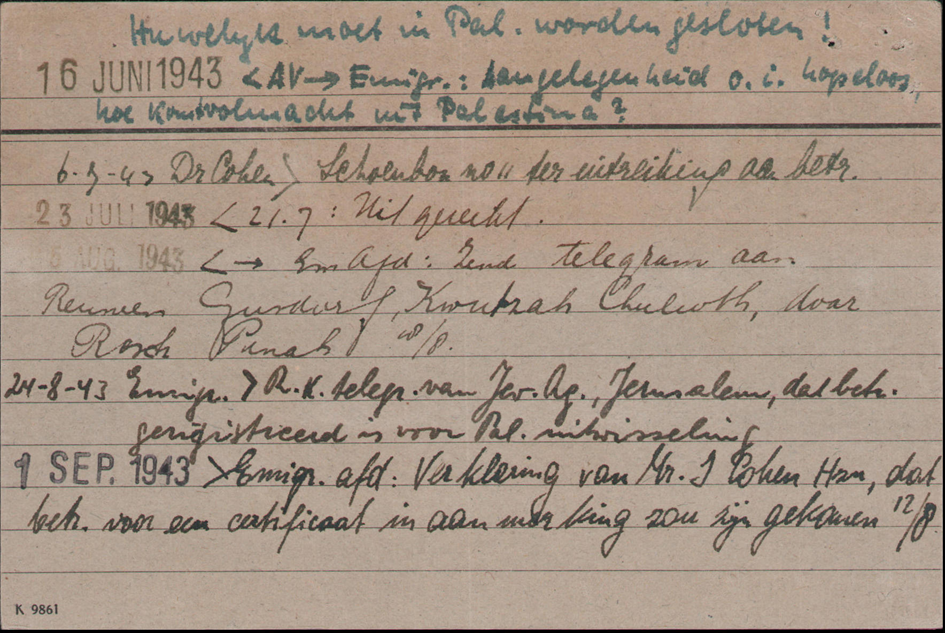 Huwelijk moet in Pal. worden gesloten!
16 JUNI 1943 <AV→ Emigr.: Aangelegenheid o.i. hopeloos,
hoe Kontrolmacht uit Palestina?
6-7-43 Dr Cohen > ter uitreiking aan betr.
23 JULI 1943 < 21.7: Uitgereikt.
5 AUG. 1943 <→ Em Afd: Zend telegram aan
Gusdorf, Kwutzah Chulioth, door
Rosch Pinah 10/8.
24-8-43 Emigr. > R.K. telegr. van Jew. Ag., Jerusalem, dat betr.
geregistreerd is voor Pal. uitwisseling
1 SEP. 1943 > Emigr. afd: Verklaring van Mr. I Cohen Hzn, dat
betr. voor een certificaat in aanmerking zou zijn gekomen 12/8
K 9861